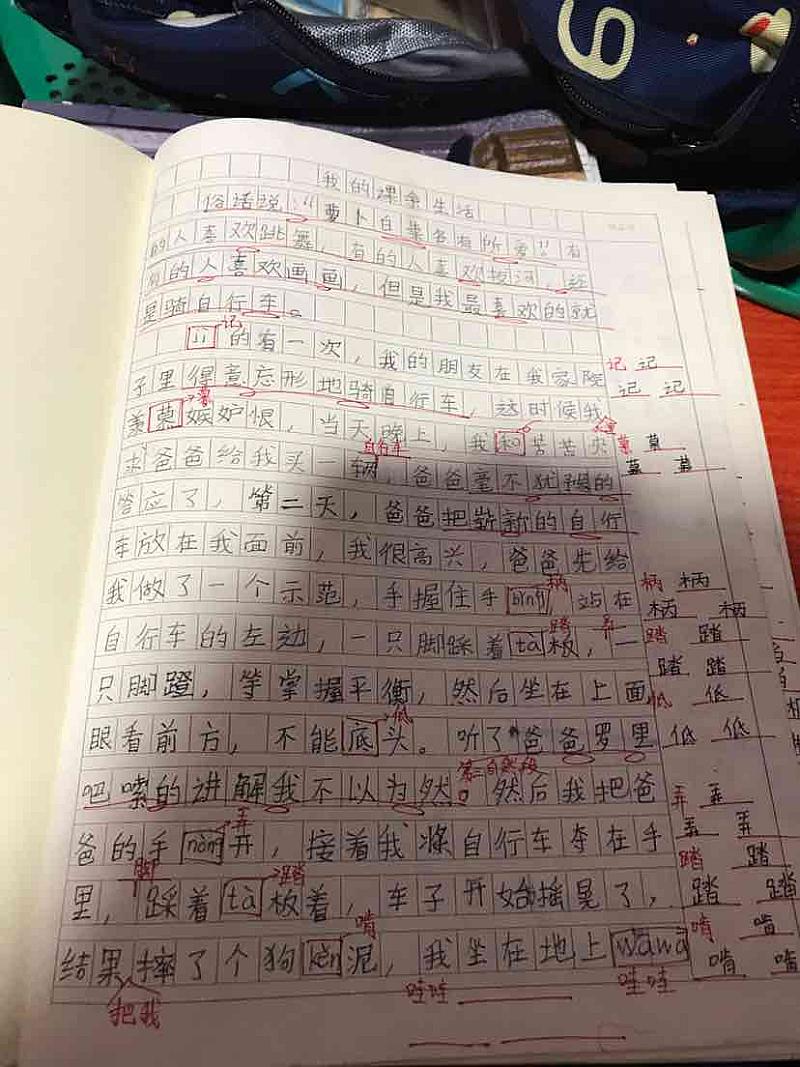 我的课余生活
俗话说:“萝卜白菜各有所爱”有
的人喜欢跳舞,有的人喜欢拔河,还
有的人喜欢画画,但是我最喜欢的就
是骑自行车。
记
jì的有一次,我的朋友在我家院 记 记
子里得意忘形地骑自行车,这时候我 记 记
慕
羡慕嫉妒恨,当天晚上,我和苦苦央 慕 慕
自行车
求爸爸给我买一辆,爸爸毫不犹豫的 慕 慕
答应了,第二天,爸爸把崭新的自行
车放在我面前,我很高兴,爸爸先给
我做了一个示范,手握住手bǐng站在 柄 柄
柄 柄 柄
自行车的左边,一只脚踩着tà板,一 踏 踏
踏 踏 踏
只脚蹬,等掌握平衡,然后坐在上面 低 低
眼看前方,不能底头。听了爸爸罗里 低 低
低
吧嗦的讲解我不以为然。然后我把爸 弄 弄
第二自然段
爸的手nòng开,接着我将自行车夺在手 弄 弄
弄
踏 踏
里,踩着tà板着,车子开始摇晃了, 踏 踏
脚 踏
啃 啃
结果摔了个狗kěn泥,我坐在地上wāwā 啃 啃
啃
把我
哇哇 哇哇